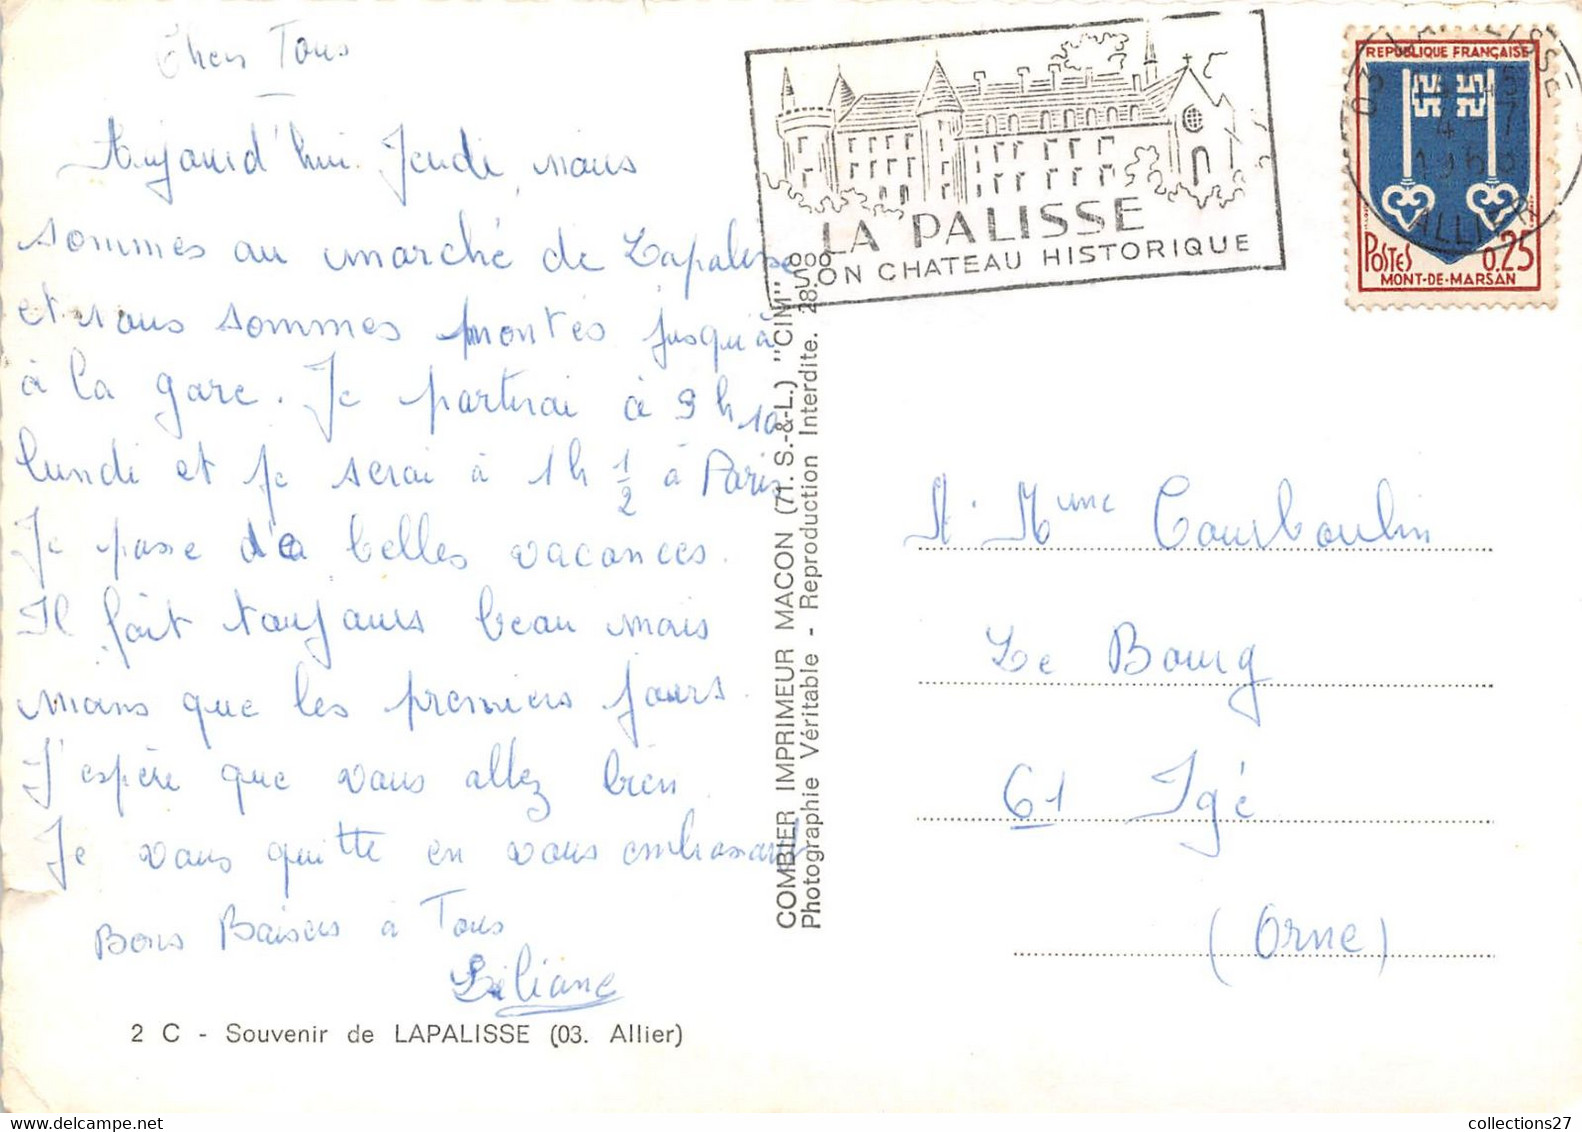 Chers Tous
Aujourd'hui Jeudi, nous
sommes au marché de Lapalisse
et nous sommes montés jusqu'à
à la gare. Je partirai à 9 h 10
lundi et je serai à 1h 1/2 à Paris
Je passe de belles vacances.
Il fait toujours beau mais
moins que les premiers jours.
J'espère que vous allez bien
Je vous quitte en vous embrassant
Bons Baisers à Tous
Liliane
2 C - Souvenir de LAPALISSE (03. Allier)
COMBIER IMPRIMEUR MACON (71. S.-&-L.) "CIM"
Photographie Véritable - Reproduction Interdite.
LA PALISSE
SON CHATEAU HISTORIQUE
REPUBLIQUE FRANÇAISE
POSTES 0,25
MONT-DE-MARSAN
03 LAPALISSE
4 7
ALLIER
M. Mme Courboulin
Le Bourg
61 Igé
(Orne)
collections27